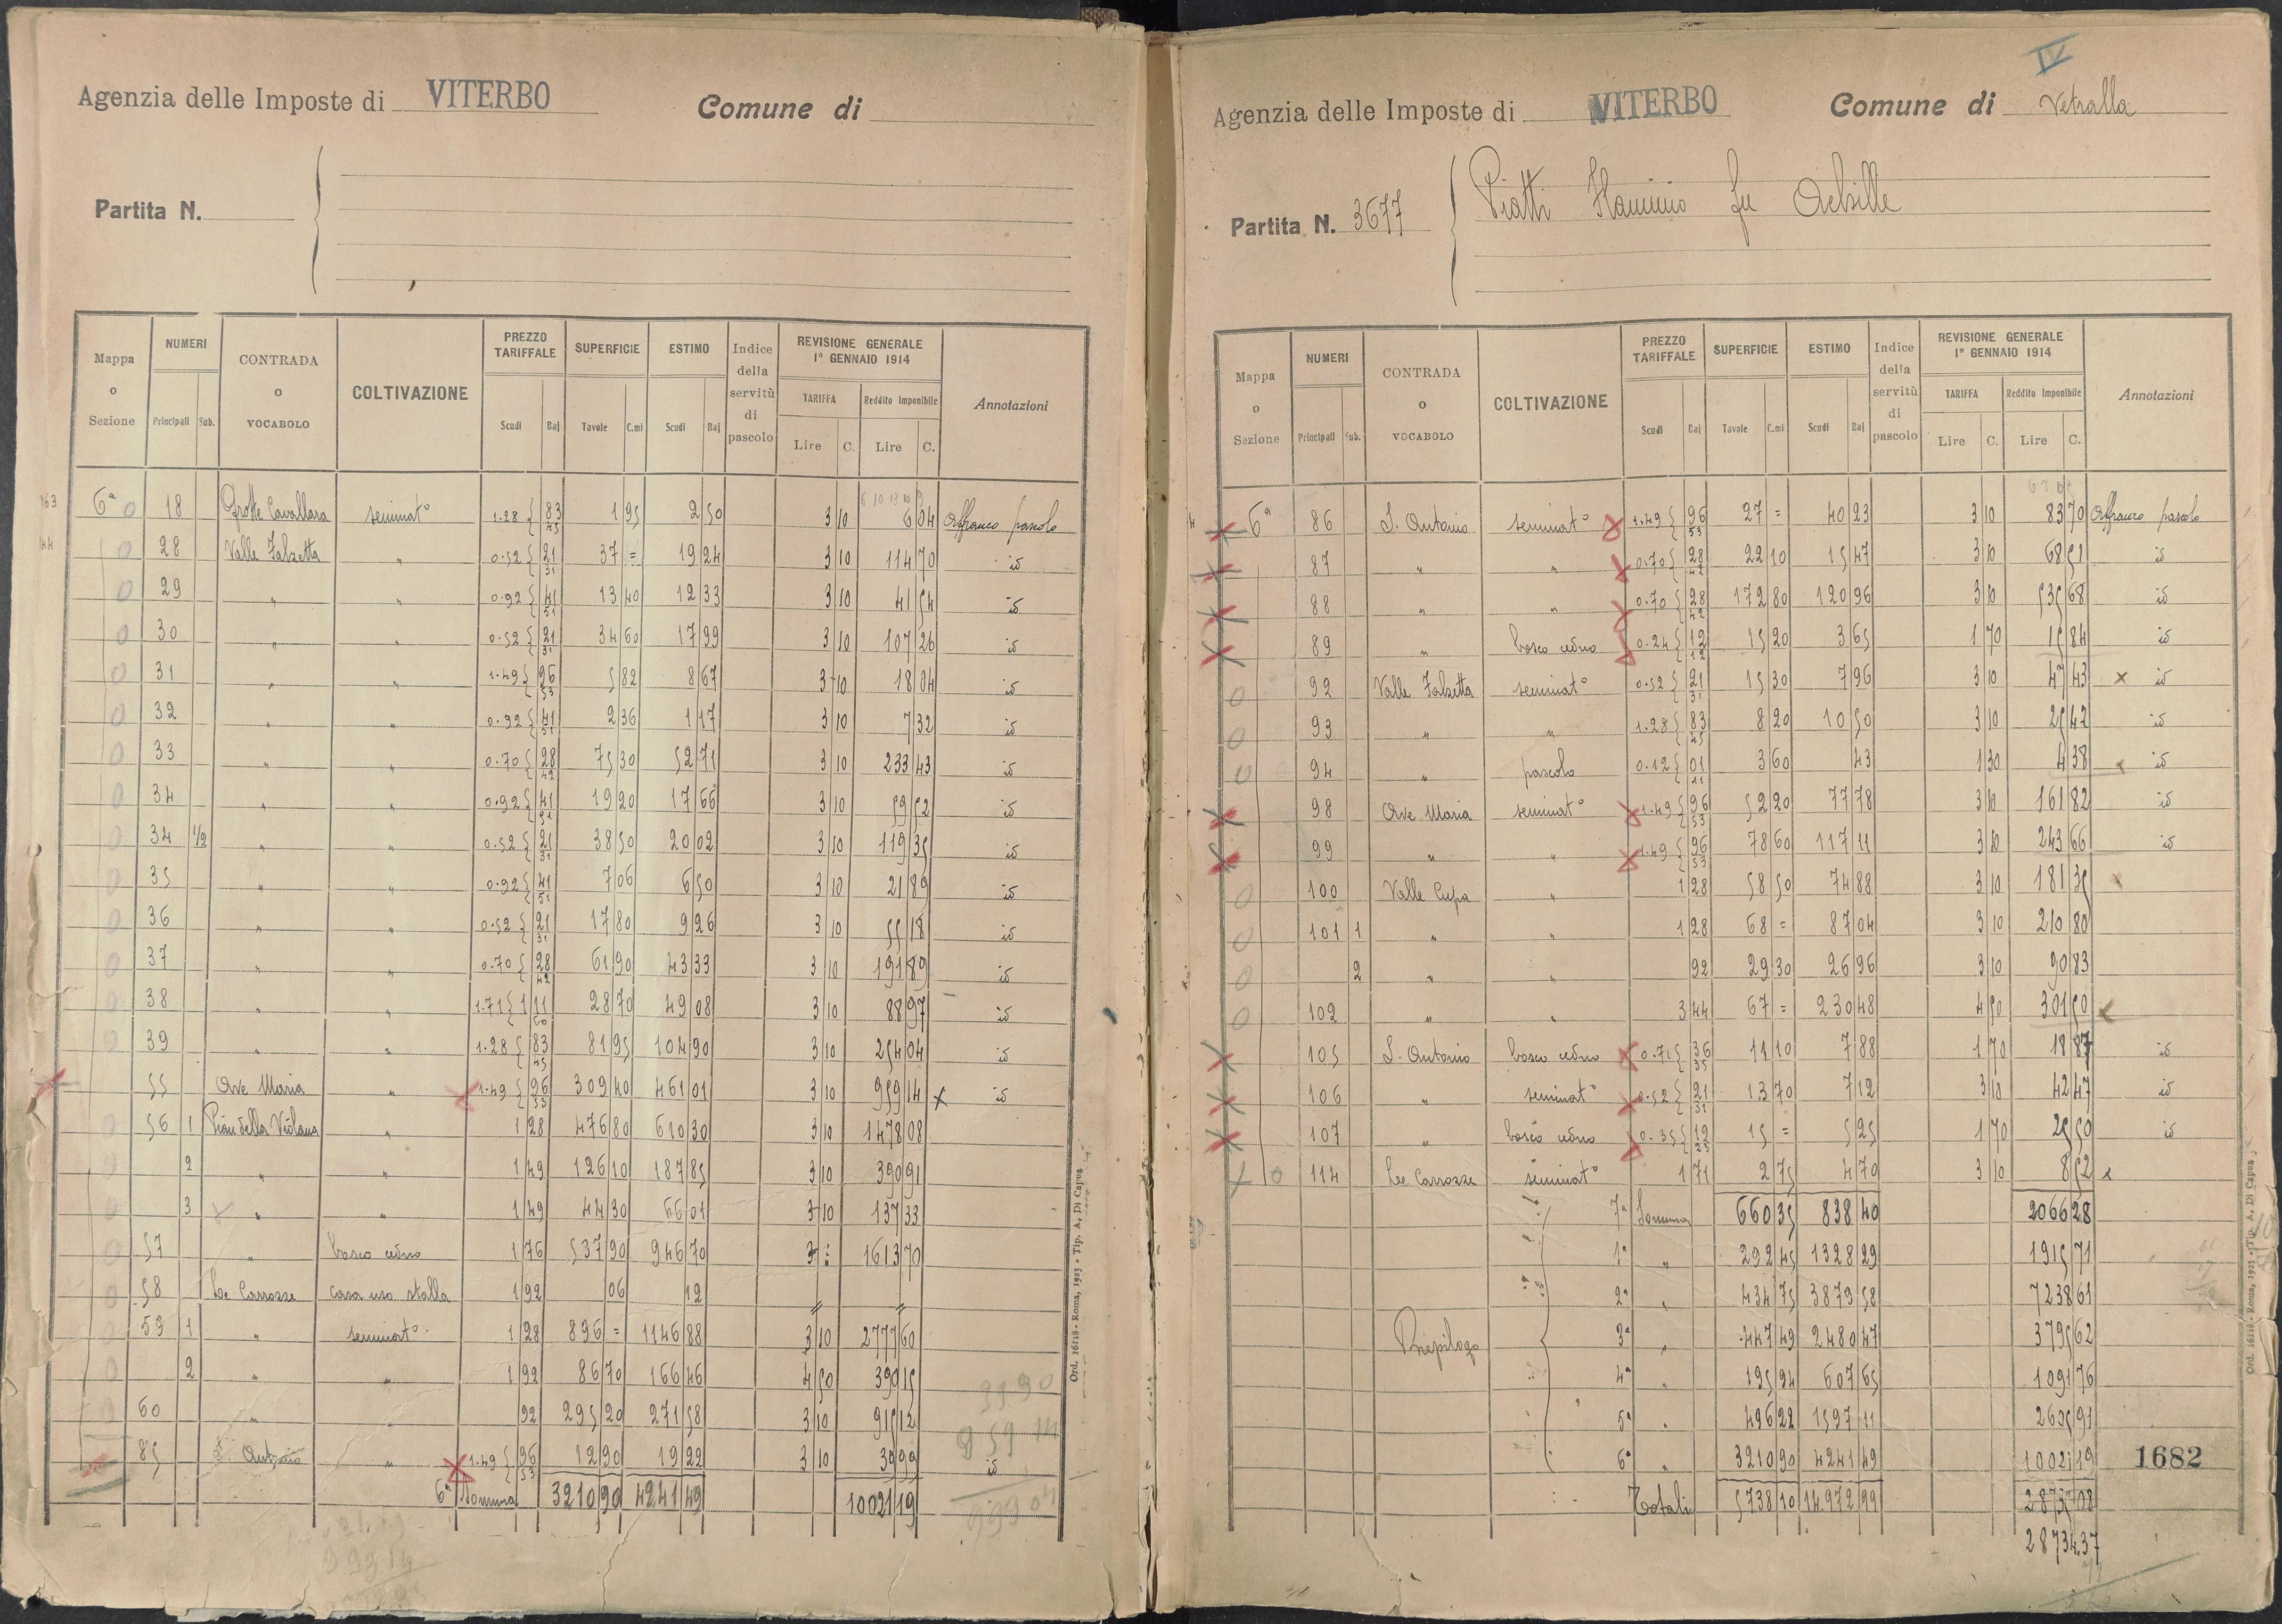 Agenzia delle Imposte di VITERBO Comune di
Partita N.
Mappa o Sezione NUMERI Principali Sub. CONTRADA o VOCABOLO COLTIVAZIONE PREZZO TARIFFALE Scudi Baj SUPERFICIE Tavole C.mi ESTIMO Scudi Baj Indice della servitù di pascolo REVISIONE GENERALE 1° GENNAIO 1914 TARIFFA Lire C. Reddito Imponibile Lire C. Annotazioni
6ª 0 18 Grotte Cavallara seminat° 1.28 { 83 45 1 95 2 50 3 10 6 04 Affranco pascolo
0 28 Valle Falzetta " 0.52 { 21 31 37 = 19 24 3 10 114 70 id
0 29 " " 0.92 { 41 51 13 40 12 33 3 10 41 54 id
0 30 " " 0.52 { 21 31 34 60 17 99 3 10 107 26 id
0 31 " " 1.49 { 96 53 5 82 8 67 3 10 18 04 id
0 32 " " 0.92 { 41 51 2 36 1 17 3 10 7 32 id
0 33 " " 0.70 { 28 42 75 30 52 71 3 10 233 43 id
0 34 " " 0.92 { 41 51 19 20 17 66 3 10 59 52 id
0 34 1/2 " " 0.52 { 21 31 38 50 20 02 3 10 119 35 id
0 35 " " 0.92 { 41 51 7 06 6 50 3 10 21 89 id
0 36 " " 0.52 { 21 31 17 80 9 26 3 10 55 18 id
0 37 " " 0.70 { 28 42 61 90 43 33 3 10 191 89 id
0 38 " " 1.71 { 1 11 60 28 70 49 08 3 10 88 97 id
0 39 " " 1.28 { 83 45 81 95 104 90 3 10 254 04 id
55 Ave Maria " 1.49 { 96 53 309 40 461 01 3 10 959 14 x id
0 56 1 Pian della Violana " 1 28 476 80 610 30 3 10 1478 08
0 2 " " 1 49 126 10 187 85 3 10 390 91
0 3 " " 1 49 44 30 66 01 3 10 137 33
0 57 " bosco ceduo 1 76 537 90 946 70 3 = 1613 70
0 58 Le Carrozze casa uso stalla 1 92 06 12 " "
0 59 1 " seminat° 1 28 896 = 1146 88 3 10 2777 60
0 2 " " 1 92 86 70 166 46 4 50 390 15
0 60 " " 92 295 20 271 58 3 10 915 12
85 S. Antonio " 1.49 { 96 53 12 90 19 22 3 10 39 99 id
6ª Somma 3210 90 4241 49 10021 19
Ord. 16118 - Roma, 1923 - Tip. A. Di Capua
IV
Agenzia delle Imposte di VITERBO Comune di Vetralla
Partita N. 3677 Piatti Flaminio fu Achille
Mappa o Sezione NUMERI Principali Sub. CONTRADA o VOCABOLO COLTIVAZIONE PREZZO TARIFFALE Scudi Baj SUPERFICIE Tavole C.mi ESTIMO Scudi Baj Indice della servitù di pascolo REVISIONE GENERALE 1° GENNAIO 1914 TARIFFA Lire C. Reddito Imponibile Lire C. Annotazioni
6ª 86 S. Antonio seminat° 1.49 { 96 53 27 = 40 23 3 10 83 70 Affranco pascolo
87 " " 0.70 { 28 42 22 10 15 47 3 10 68 51 id
88 " " 0.70 { 28 42 172 80 120 96 3 10 535 68 id
89 " bosco ceduo 0.24 { 12 12 15 20 3 65 1 70 15 84 id
0 92 Valle Falzetta seminat° 0.52 { 21 31 15 30 7 96 3 10 47 43 x id
0 93 " " 1.28 { 83 45 8 20 10 50 3 10 25 42 id
0 94 " pascolo 0.12 { 01 11 3 60 43 1 30 4 38 id
98 Ave Maria seminat° 1.49 { 96 53 52 20 77 78 3 10 161 82 id
99 " " 1.49 { 96 53 78 60 117 11 3 10 243 66 id
0 100 Valle Cupa " 1 28 58 50 74 88 3 10 181 35
0 101 1 " " 1 28 68 = 87 04 3 10 210 80
0 2 " " 92 29 30 26 96 3 10 90 83
0 102 " " 3 44 67 = 230 48 4 50 301 50
105 S. Antonio bosco ceduo 0.71 { 36 35 11 10 7 88 1 70 18 87 id
106 " seminat° 0.52 { 21 31 13 70 7 12 3 10 42 47 id
107 " bosco ceduo 0.35 { 12 23 15 = 5 25 1 70 25 50 id
0 114 Le Carrozze seminat° 1 71 2 75 4 70 3 10 8 52 x
7ª Somma 660 35 838 40 2066 28
1ª " 292 45 1328 29 1915 71
2ª " 434 75 3879 58 7238 61
Riepilogo 3ª " 447 49 2480 47 3795 62
4ª " 195 94 607 65 1091 76
5ª " 496 22 1597 11 2605 91
6ª " 3210 90 4241 49 10021 19 1682
Totali 5738 10 14,972 99 28735 08
28734.37
Ord. 16118 - Roma, 1923 - Tip. A. Di Capua